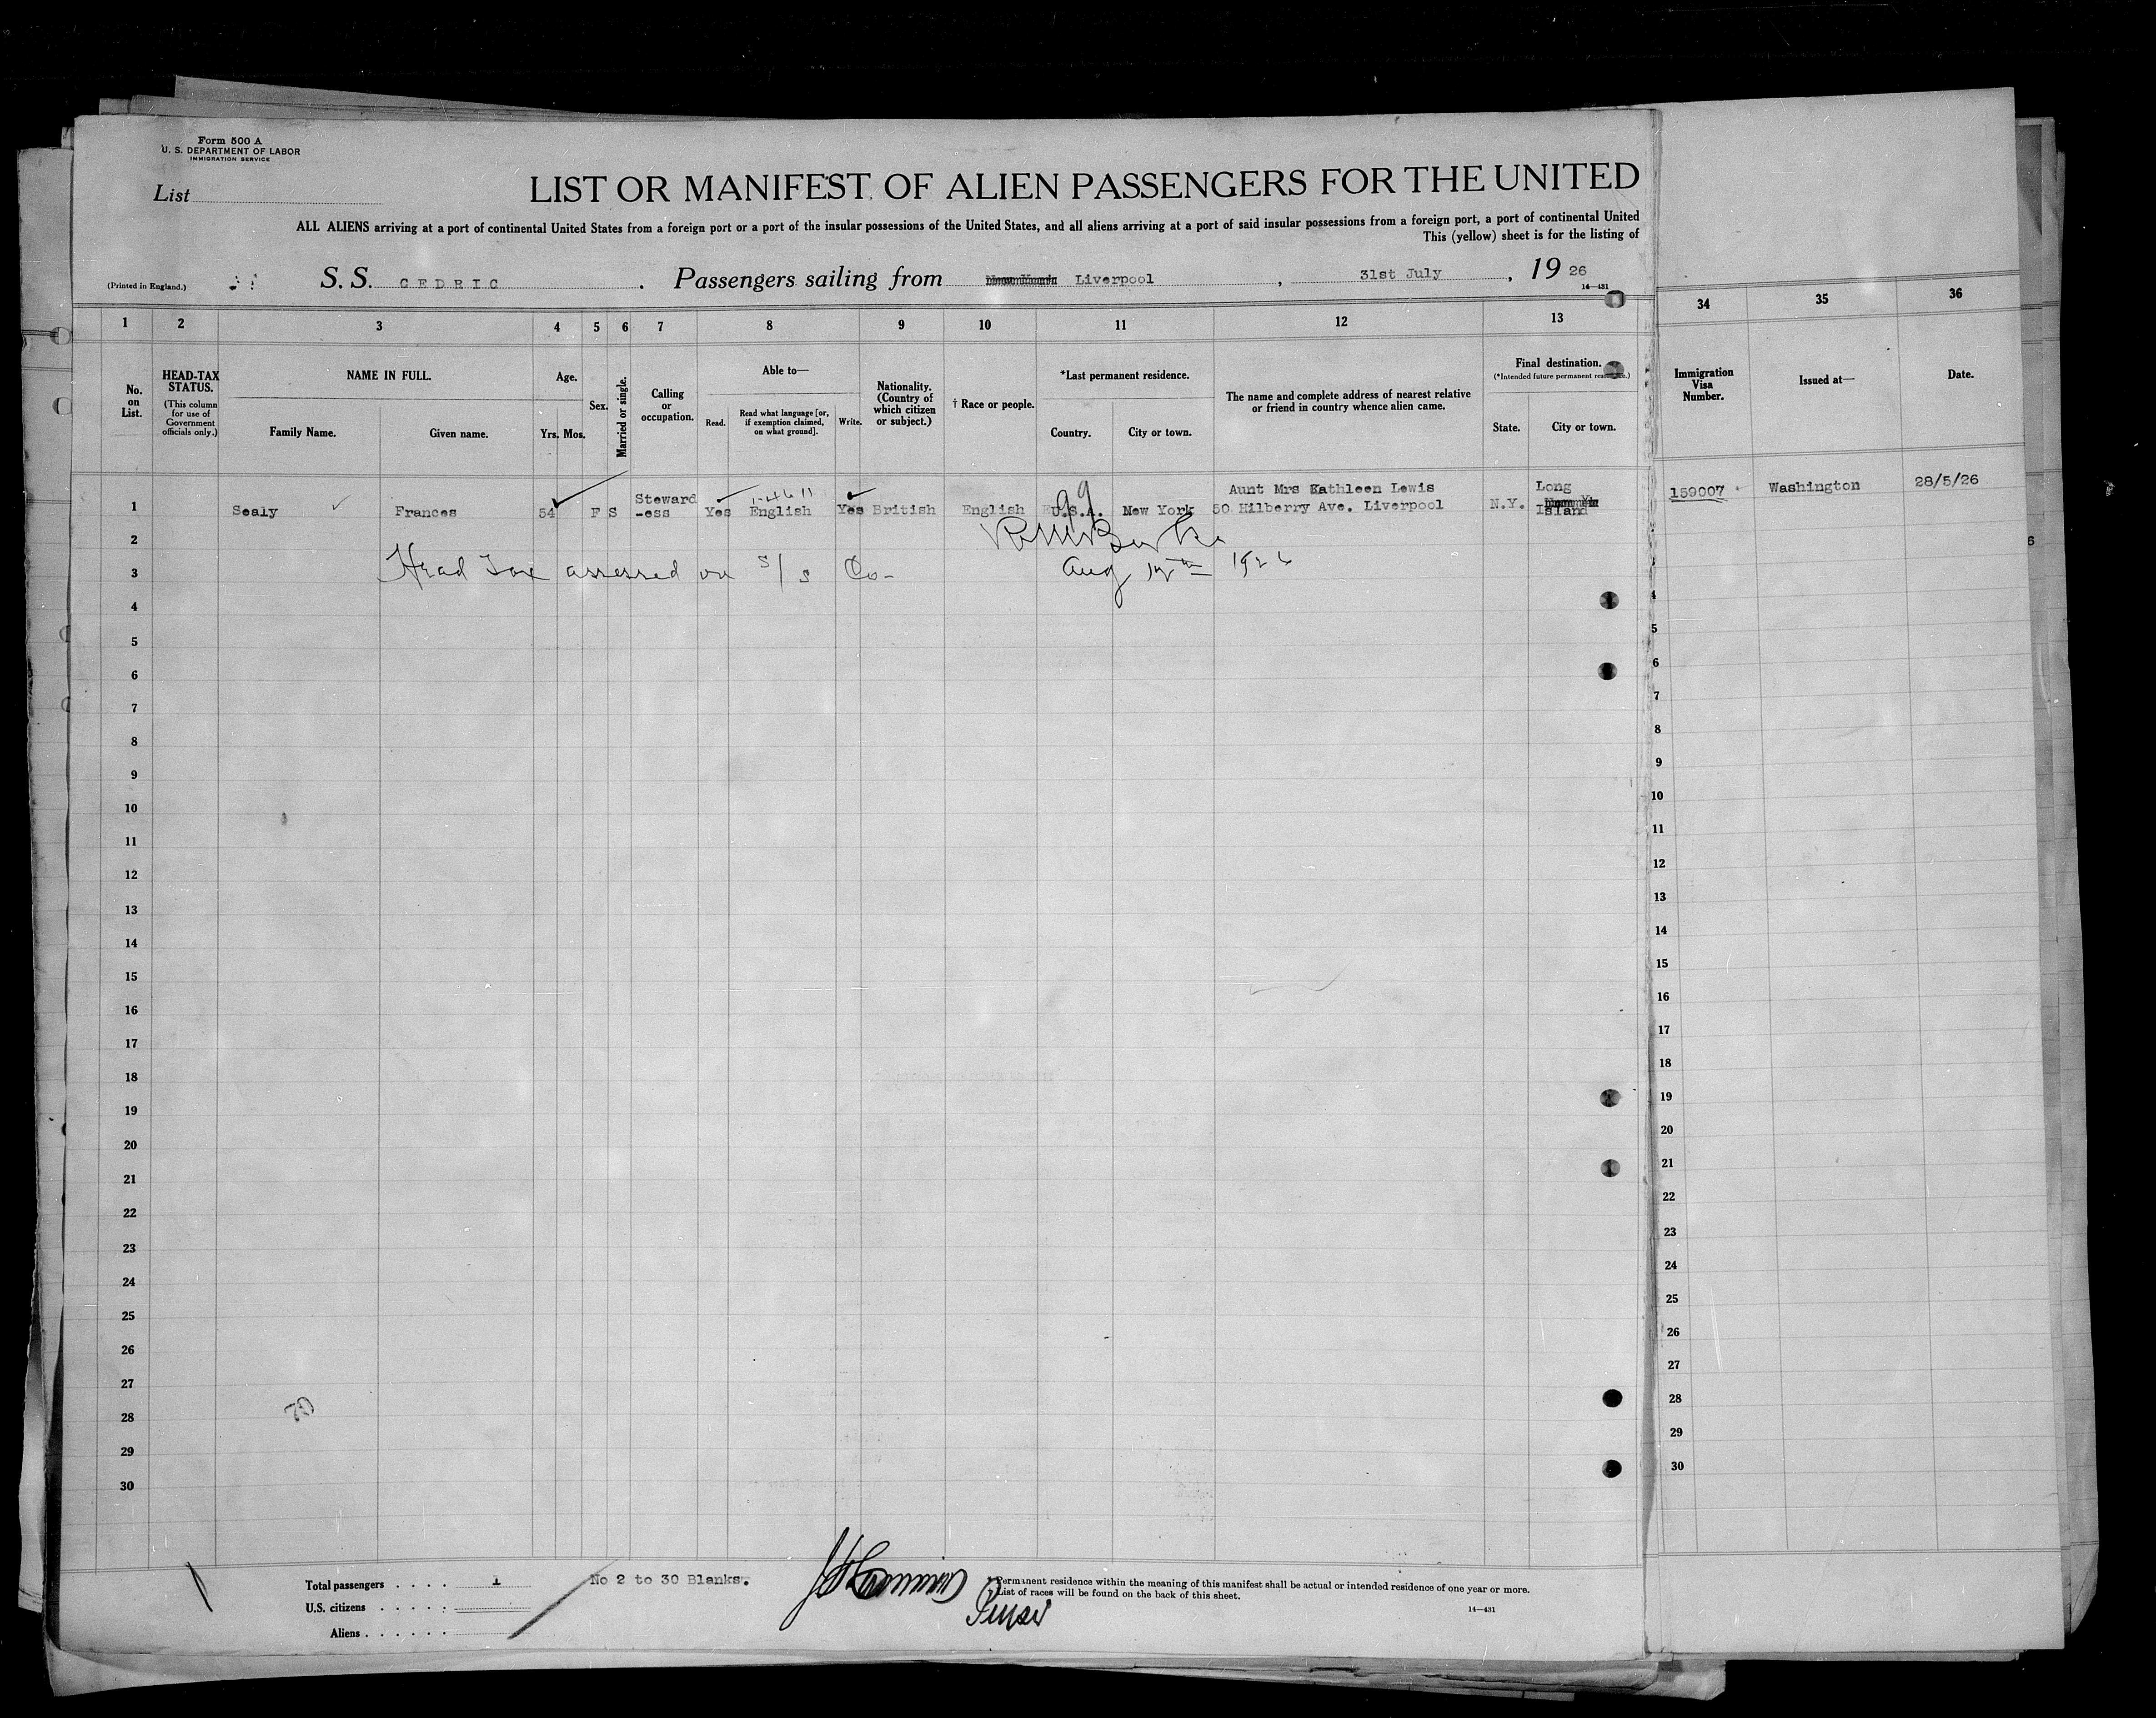 Form 500 A
U. S. DEPARTMENT OF LABOR
IMMIGRATION SERVICE
List
LIST OR MANIFEST OF ALIEN PASSENGERS FOR THE UNITED
ALL ALIENS arriving at a port of continental United States from a foreign port or a port of the insular possessions of the United States, and all aliens arriving at a port of said insular possessions from a foreign port, a port of continental United
This (yellow) sheet is for the listing of
(Printed in England.) S. S. CEDRIC . Passengers sailing from Liverpool , 31st July , 19 26
14—431
1 2 3 4 5 6 7 8 9 10 11 12 13 34 35 36
No. on List.
HEAD-TAX STATUS.
(This column for use of Government officials only.)
NAME IN FULL.
Family Name. Given name.
Age.
Yrs. Mos.
Sex.
Married or single.
Calling or occupation.
Able to—
Read. Read what language [or, if exemption claimed, on what ground]. Write.
Nationality. (Country of which citizen or subject.)
† Race or people.
*Last permanent residence.
Country. City or town.
The name and complete address of nearest relative or friend in country whence alien came.
Final destination.
(*Intended future permanent residence.)
State. City or town.
Immigration Visa Number.
Issued at—
Date.
1 Sealy Frances 54 F S Steward-ess Yes English Yes British English U.S.A. New York Aunt Mrs Kathleen Lewis 50 Hilberry Ave. Liverpool N.Y. Long Island 159007 Washington 28/5/26
2
3 Head Tax assessed on S/S Co- Aug 12th 1926
4 4
5 5
6 6
7 7
8 8
9 9
10 10
11 11
12 12
13 13
14 14
15 15
16 16
17 17
18 18
19 19
20 20
21 21
22 22
23 23
24 24
25 25
26 26
27 27
28 28
29 29
30 30
Total passengers 1
U.S. citizens
Aliens
No 2 to 30 Blanks.
Purser
Permanent residence within the meaning of this manifest shall be actual or intended residence of one year or more.
List of races will be found on the back of this sheet.
14—431